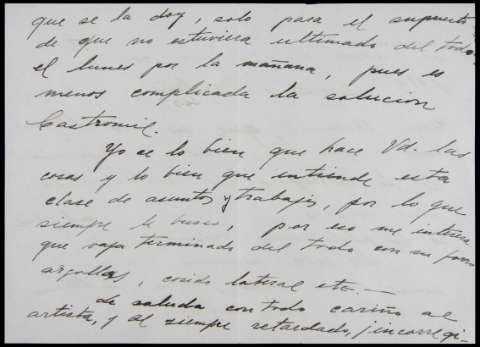 que se la doy, solo para el supuesto
de que no estuviera ultimado del todo
el lunes por la mañana, pues es
menos complicada la solucion
Castromil.
Yo se lo bien que hace Vd. las
cosas y lo bien que entiende esta
clase de asuntos y trabajos, por lo que
siempre le busco, por eso me interesa
que vaja terminado del todo con su forro
argollas, cosido lateral etc.—
Le saluda con todo cariño al
artista, y al siempre retardado, ¡incorregi-